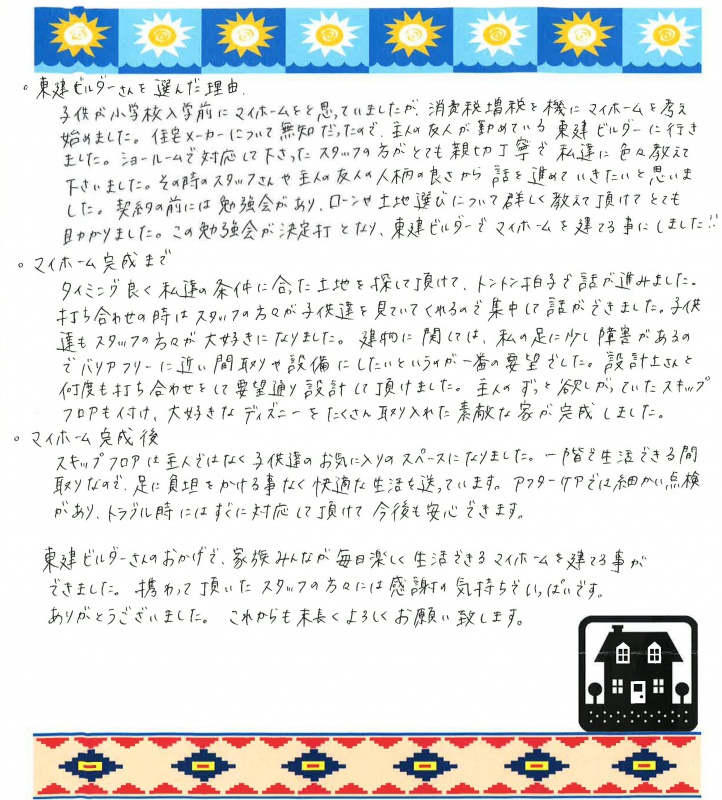 。東建ビルダーさんを選んだ理由.
子供が小学校入学前にマイホームをと思っていましたが、消費税増税を機にマイホームを考え
始めました。住宅メーカーについて無知だったので、主人の友人が勤めている東建ビルダーに行き
ました。ショールームで対応して下さったスタッフの方がとても親切丁寧で私達に色々教えて
下さいました。その時のスタッフさんや主人の友人の人柄の良さから話を進めていきたいと思いま
した。契約の前には勉強会があり、ローンや土地選びについて詳しく教えて頂けてとても
助かりました。この勉強会が決定打となり、東建ビルダーでマイホームを建てる事にしました!!
。マイホーム完成まで
タイミング良く私達の条件に合った土地を探して頂けて、トントン拍子で話が進みました。
打ち合わせの時はスタッフの方々が子供達を見ていてくれるので集中して話ができました。子供
達もスタッフの方々が大好きになりました。建物に関しては、私の足に少し障害があるの
でバリアフリーに近い間取りや設備にしたいというのが一番の要望でした。設計士さんと
何度も打ち合わせをして要望通り設計して頂けました。主人のずっと欲しがっていたスキップ
フロアも付け、大好きなディズニーをたくさん取り入れた素敵な家が完成しました。
。マイホーム完成後
スキップフロアは主人ではなく子供達のお気に入りのスペースになりました。一階で生活できる間
取りなので、足に負担をかける事なく快適な生活を送っています。アフターケアでは細かい点検
があり、トラブル時にはすぐに対応して頂けて今後も安心できます。
東建ビルダーさんのおかげで、家族みんなが毎日楽しく生活できるマイホームを建てる事が
できました。携わって頂いたスタッフの方々には感謝の気持ちでいっぱいです。
ありがとうございました。これからも末長くよろしくお願い致します。